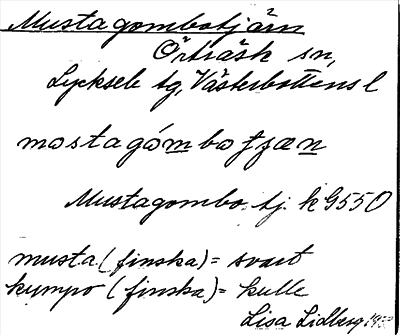 Mustagombotjärn
Örträsk sn,
Lycksele tg, Västerbottens l
mostagómbotjæn
Mustagombo. tj. k G550
musta (finska) = svart
kumpo (finska) = kulle
Lisa Lidberg